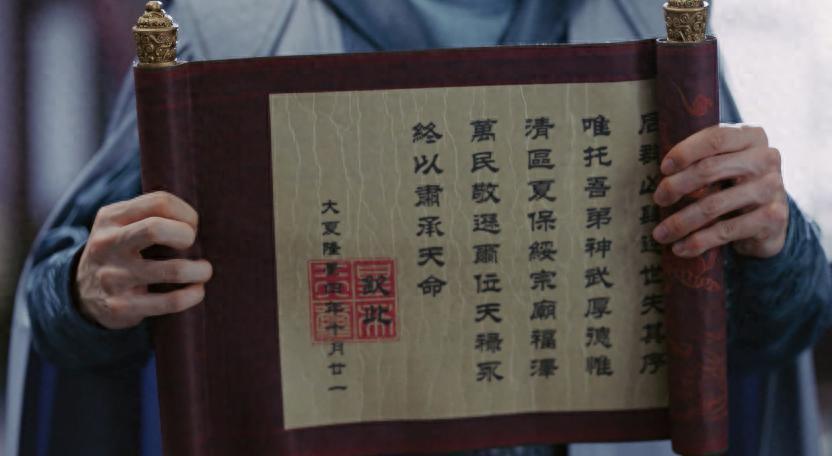 群凶肆逆世失其序
唯托吾弟神武厚德惟
清區夏保綏宗廟福澤
萬民敬遜爾位天祿永
終以肅承天命
欽此
大夏隆年十月廿一